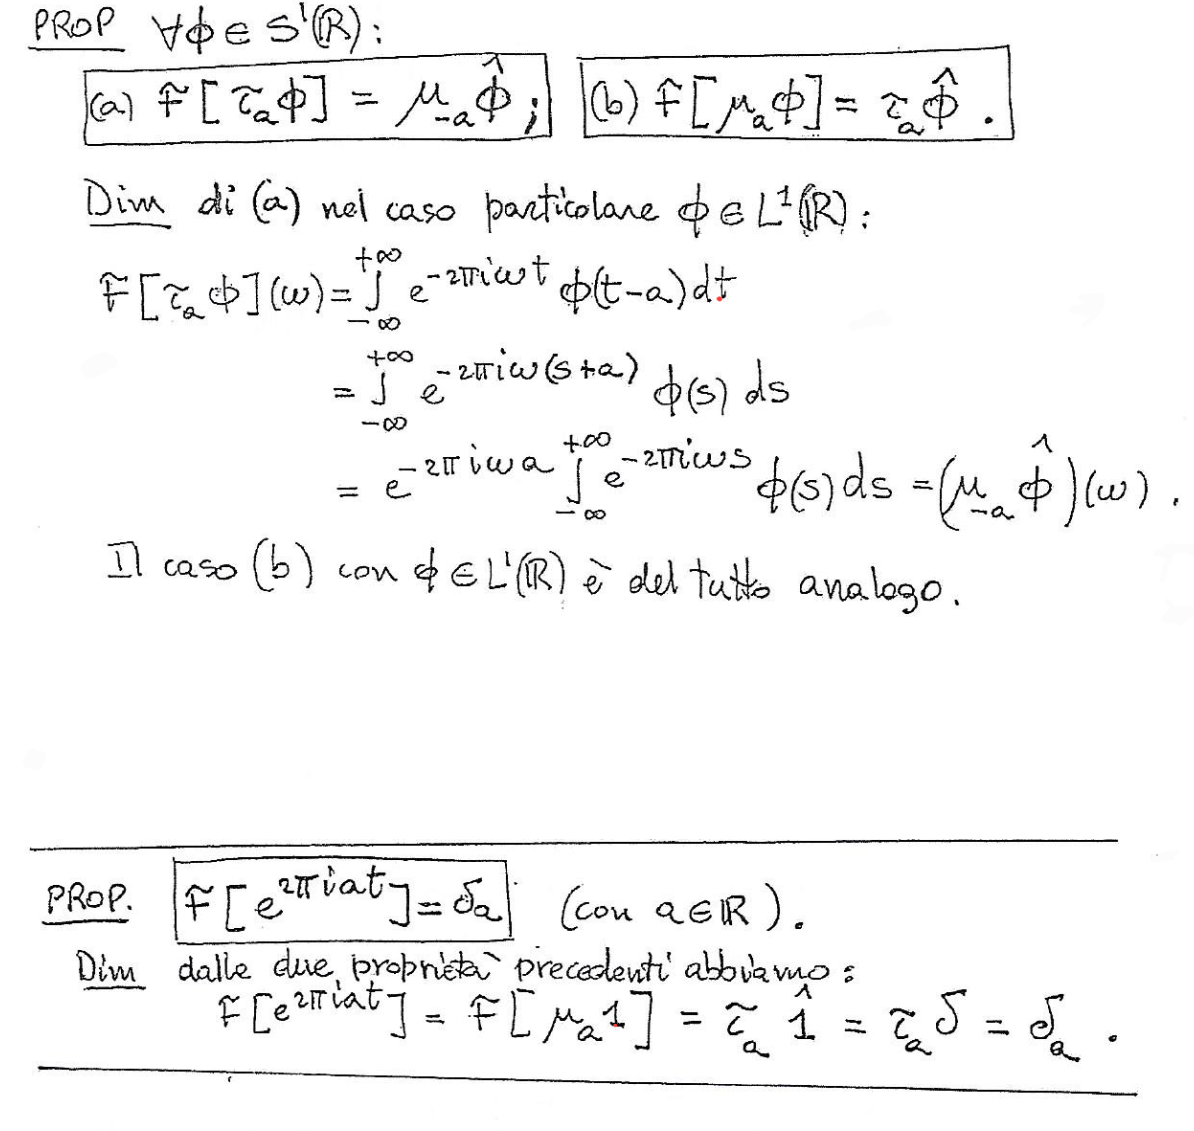 PROP ∀ϕ ∈ S'(ℝ):
(a) F[τ_a ϕ] = μ_{-a} ϕ̂ ; (b) F[μ_a ϕ] = τ_a ϕ̂ .
Dim di (a) nel caso particolare ϕ ∈ L¹(ℝ):
F[τ_a ϕ](ω) = ∫_{-∞}^{+∞} e^{-2πiωt} ϕ(t-a) dt
= ∫_{-∞}^{+∞} e^{-2πiω(s+a)} ϕ(s) ds
= e^{-2πiωa} ∫_{-∞}^{+∞} e^{-2πiωs} ϕ(s) ds = (μ_{-a} ϕ̂)(ω) .
Il caso (b) con ϕ ∈ L¹(ℝ) è del tutto analogo.
PROP. F[e^{2πiat}] = δ_a (con a ∈ ℝ).
Dim dalle due proprietà precedenti abbiamo:
F[e^{2πiat}] = F[μ_a 1] = τ_a 1̂ = τ_a δ = δ_a .